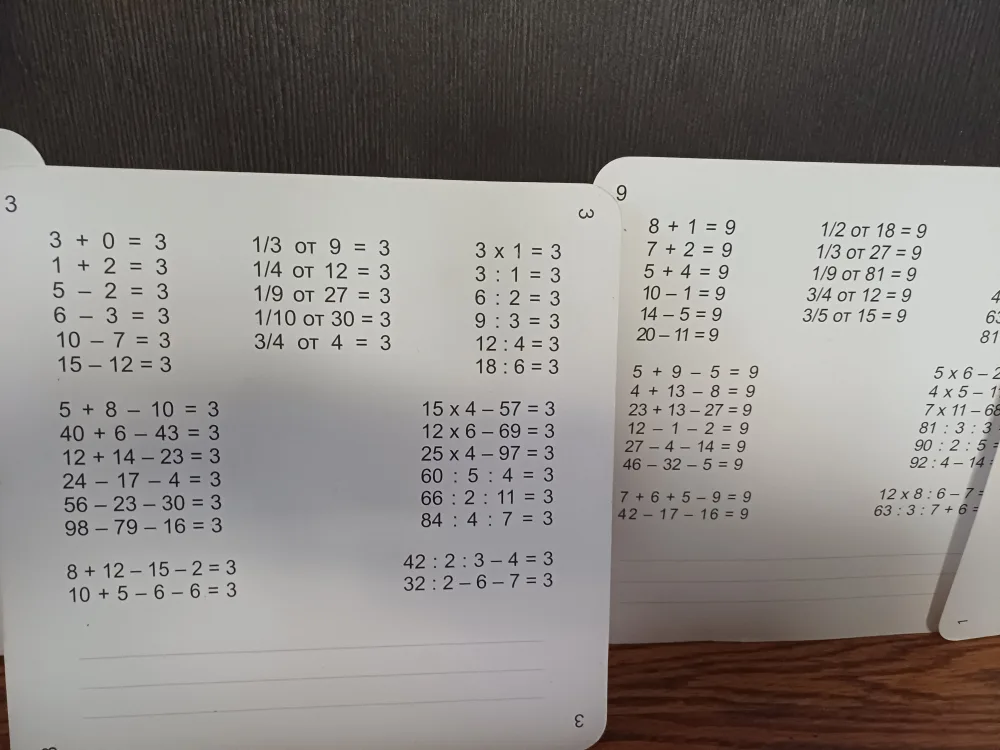 3
3
3 + 0 = 3
1 + 2 = 3
5 – 2 = 3
6 – 3 = 3
10 – 7 = 3
15 – 12 = 3
1/3 от 9 = 3
1/4 от 12 = 3
1/9 от 27 = 3
1/10 от 30 = 3
3/4 от 4 = 3
3 x 1 = 3
3 : 1 = 3
6 : 2 = 3
9 : 3 = 3
12 : 4 = 3
18 : 6 = 3
5 + 8 – 10 = 3
40 + 6 – 43 = 3
12 + 14 – 23 = 3
24 – 17 – 4 = 3
56 – 23 – 30 = 3
98 – 79 – 16 = 3
15 x 4 – 57 = 3
12 x 6 – 69 = 3
25 x 4 – 97 = 3
60 : 5 : 4 = 3
66 : 2 : 11 = 3
84 : 4 : 7 = 3
8 + 12 – 15 – 2 = 3
10 + 5 – 6 – 6 = 3
42 : 2 : 3 – 4 = 3
32 : 2 – 6 – 7 = 3
3
9
8 + 1 = 9
7 + 2 = 9
5 + 4 = 9
10 – 1 = 9
14 – 5 = 9
20 – 11 = 9
1/2 от 18 = 9
1/3 от 27 = 9
1/9 от 81 = 9
3/4 от 12 = 9
3/5 от 15 = 9
4
63
81
5 + 9 – 5 = 9
4 + 13 – 8 = 9
23 + 13 – 27 = 9
12 – 1 – 2 = 9
27 – 4 – 14 = 9
46 – 32 – 5 = 9
5 x 6 – 2
4 x 5 – 1
7 x 11 – 68
81 : 3 : 3
90 : 2 : 5 =
92 : 4 – 14 =
7 + 6 + 5 – 9 = 9
42 – 17 – 16 = 9
12 x 8 : 6 – 7 =
63 : 3 : 7 + 6 =
1